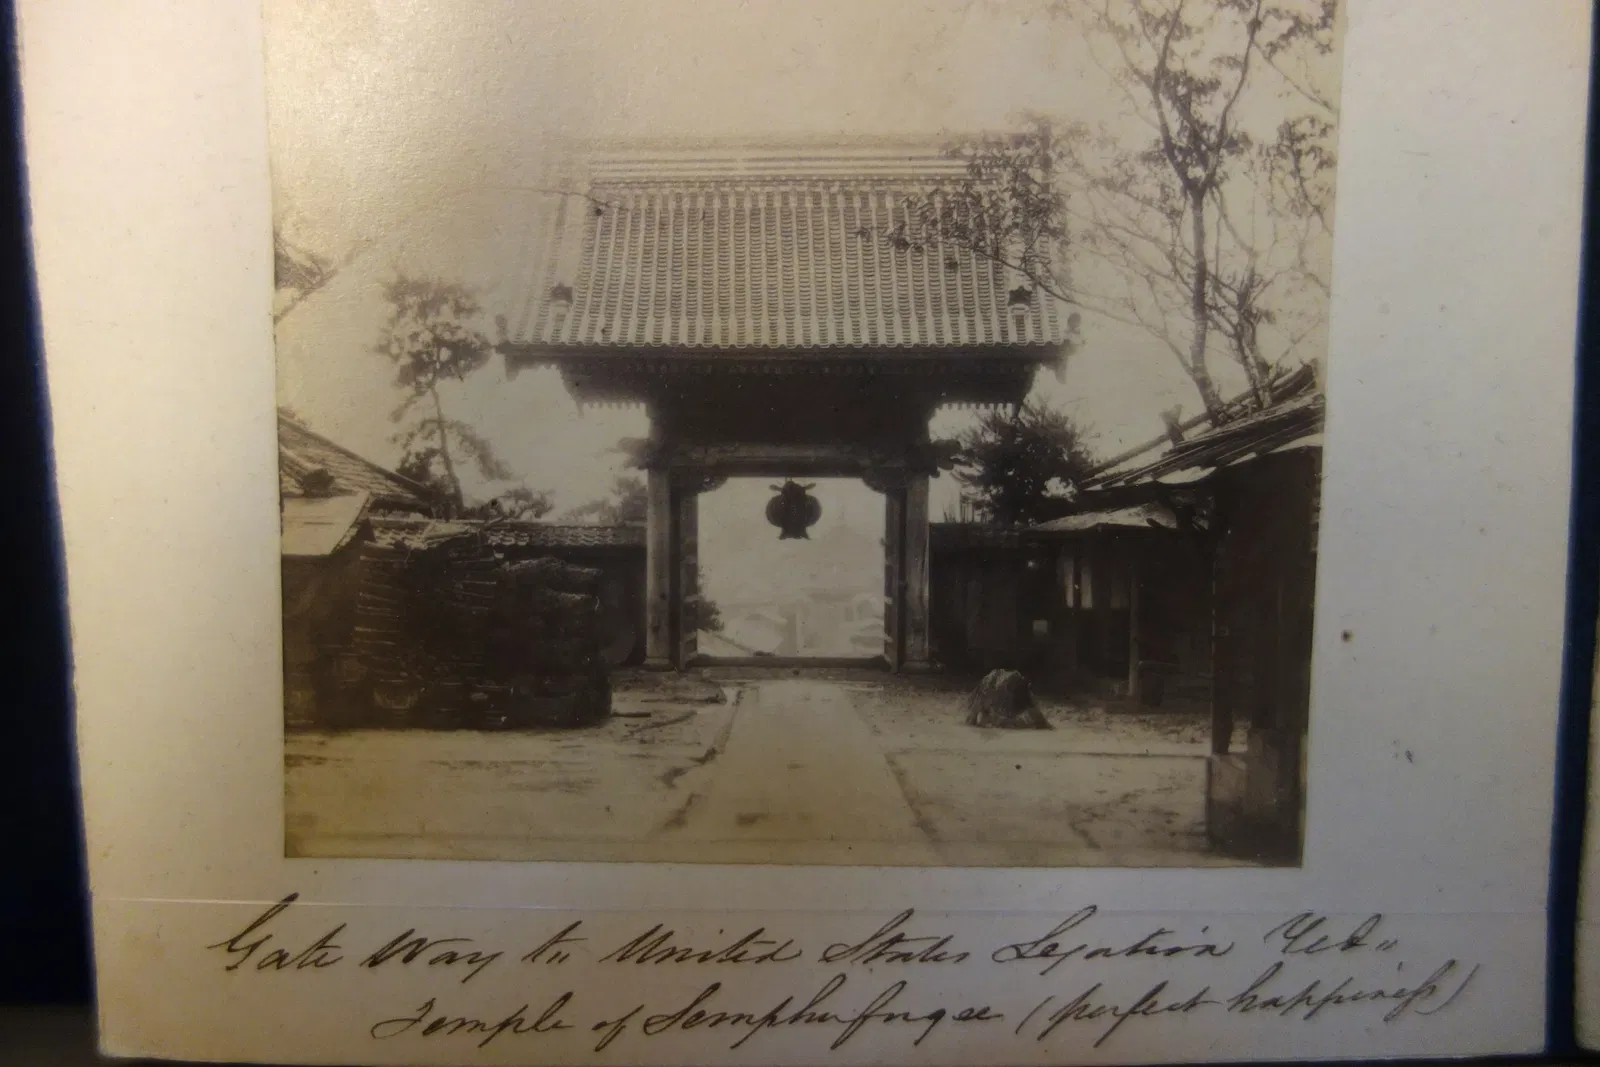 Gate Way to United States Legation Yedo
Temple of Semphufugee (perfect happiness)